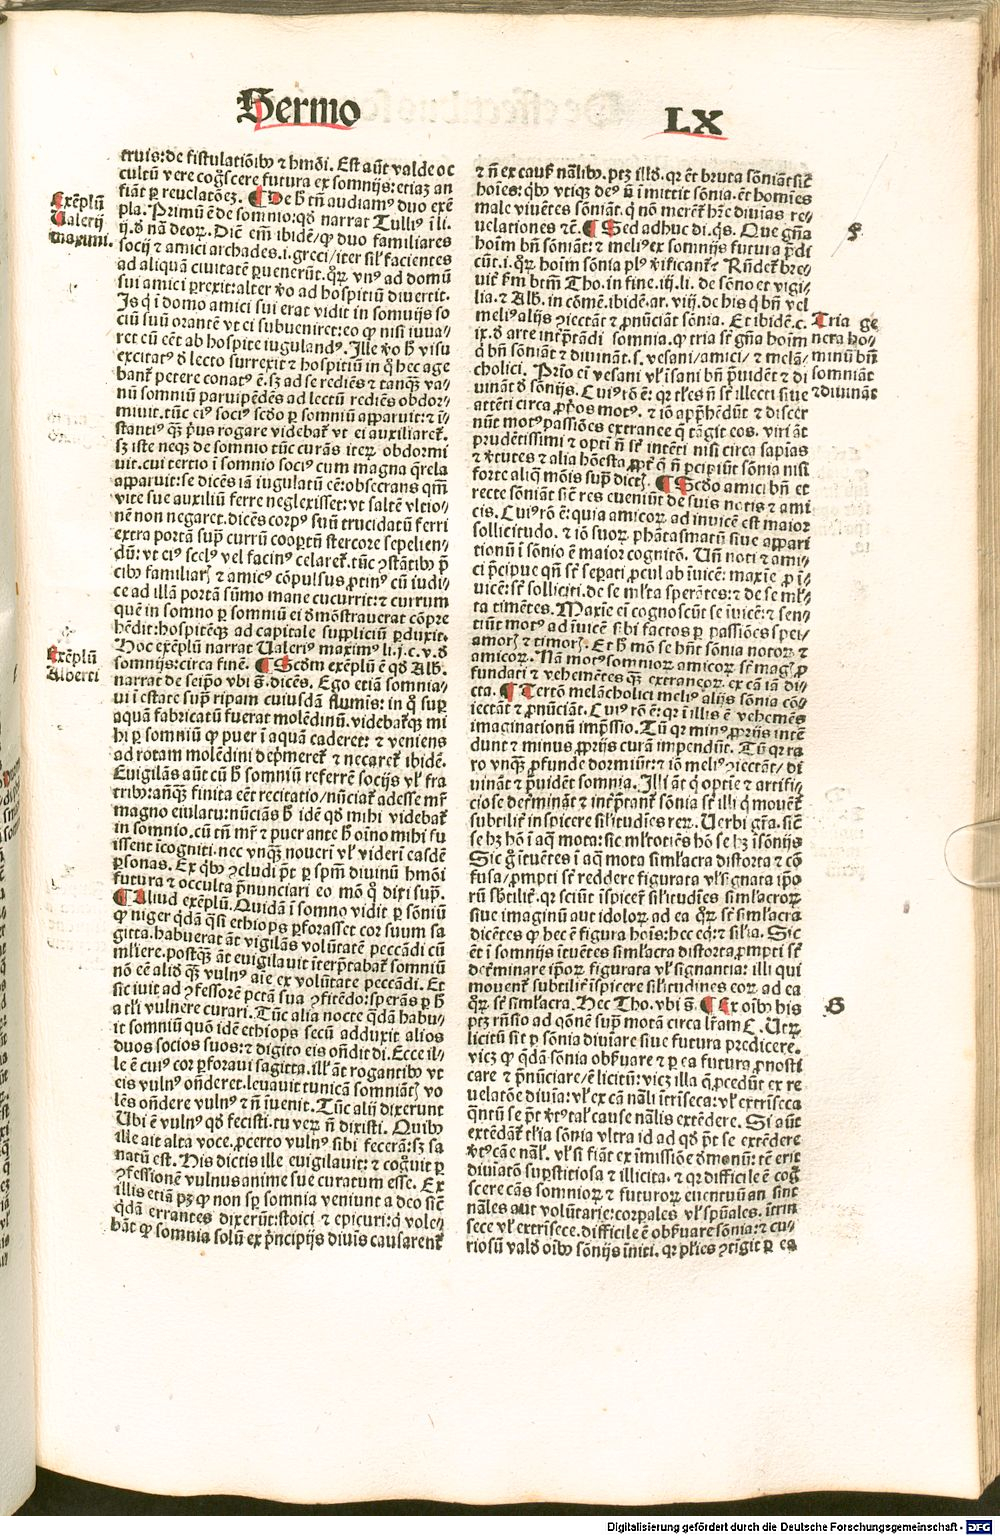 Sermo
LX
truis: de fistulatiōib⁹ ⁊ hmōi. Est aūt valde oc
cultū vere cog̃scere futura ex somnijs: etiaȝ an
fiānt ꝑ reuelatōeȝ. ¶ De h̄ tn̄ audiam⁹ duo exē
pla. Primū ē de somnio: qđ narrat Tulli⁹ ī li.
ij. đ nā deoꝝ. Diē em̄ ibidē/ꝙ duo familiares
socij ⁊ amici archades .i. greci/iter sil̕ facientes
ad aliquā ciuitatē ꝑuenerūt. q̊ꝝ vn⁹ ad domū
sui amici ꝑrexit: alter v̕o ad hospitiū diuertit.
Is q̄ ī domo amici sui erat vidit in somnijs so
ciū suū orantē vt ei subueniret: eo ꝙ nisi iuua-
ret cū eēt ab hospite iuguland⁹. Ille v̕o h̄ visu
excitat⁹ đ lecto surrexit ⁊ hospitiū in q̊ hec age
bant̕ petere conat⁹ ē. sȝ ad se rediēs ⁊ tanq̄ȝ va-
nū somniū paruipēdēs ad lectū rediēs obdor-
miuit. tūc ei⁹ soci⁹ scđo ꝑ somniū apparuit: ⁊ ī-
stanti⁹ q̄ȝ p̄us rogare videbat̕ vt ei auxiliaret̕.
sȝ iste neqȝ de somnio tūc curās iteꝝ obdormi
uit. cui tertio ī somnio soci⁹ cum magna q̄rela
apparuit: se dicēs iā iugulatū eē: obsecrans qm̄
vite sue auxiliū ferre neglexisset: vt saltē vltio-
nē non negaret. dicēs corp⁹ suū trucidatū ferri
extra portā sup̄ currū cooptū stercore sepelien-
dū: vt ei⁹ scel⁹ vel facin⁹ celaret̕. tūc ꝯstātib⁹ p̄
cib⁹ familiarꝭ ⁊ amic⁹ cōpulsus ꝓtin⁹ cū iudi-
ce ad illā portā sūmo mane cucurrit: ⁊ currum
quē in somno ꝑ somniū ei dmōstrauerat cōpre
hēdit: hospitēqȝ ad capitale suppliciū ꝑduxit.
Hoc exēplū narrat Valeri⁹ maxim⁹ li. j. c. v. đ
somnijs: circa finē. ¶ Scđm exēplū ē qđ Alb.
narrat de seip̄o vbi s̄. dicēs. Ego etiā somnia-
ui ī estate sup̄ ripam cuiusdā flumīs: in q̊ sup̄
aquā fabricatū fuerat molēdinū. videbat̕qȝ mi
hi ꝑ somniū ꝙ puer ī aquā caderet: ⁊ veniens
ad rotam molēdini dep̄meret̕ ⁊ necaret̕ ibidē.
Euigilās aūt cū h̄ somniū referrē socijs vl̕ fra
trib⁹: anq̄ȝ finita eēt recitatio/nūciat̕ adesse mr̄
magno eiulatu: nūciās h̄ idē qđ mihi videbat̕
in somnio. cū tn̄ mr̄ ⁊ puer ante h̄ oīno mihi fu
issent īcogniti. nec vnq̄ȝ nouerī vl̕ viderī easdē
ꝑsonas. Ex qib⁹ ꝯcludi p̄t ꝑ spm̄ diuinū hmōi
futura ⁊ occulta p̄nunciari eo mō q̊ dixi sup̄.
¶ Aliud exēplū. Quidā ī somno vidit ꝑ sōniū
ꝙ niger qdā q̄si ethiops ꝑforasset cor suum sa
gitta. habuerat āt vigilās volūtatē peccādi cū
ml̕iere. postq̄ȝ āt euigilauit īterp̄tabat̕ somniū
nō eē aliđ q̄ȝ vuln⁹ aīe ex volūtate peccādi. Et
sic iuit ad ꝯfessorē pctā sua ꝯfitēdo: sperās ꝑ h̄
a tl̕i vulnere curari. Tūc alia nocte qdā habu-
it somniū quō idē ethiops secū adduxit alios
duos socios suos: ⁊ digito eis on̄dit di. Ecce il-
le ē cui⁹ cor ꝑforaui sagitta. ill̕ āt rogantib⁹ vt
eis vuln⁹ on̄deret. leuauit tunicā somniātꝭ vo
lēs on̄dere vuln⁹ ⁊ nō īuenit. Tūc alij dixerunt
Ubi ē vuln⁹ qđ fecisti. tu veꝝ n̄ dixisti. Quib⁹
ille ait alta voce. ꝓcerto vuln⁹ sibi fecerā: sȝ sa
natū est. His dictis ille euigilauit: ⁊ cog̃uit ꝑ
ꝯfessionē vulnus anime sue curatum esse. Ex
illis etiā pȝ ꝙ non sp̄ somnia veniunt a deo sicē
qdā errantes dixerūt: stoici ⁊ epicuri: q̊ vole-
bāt ꝙ somnia solū ex p̄ncipijs diuis causarent̕
Exēplū
Ualerij
maximi.
Exēplū
Alberti
⁊ n̄ ex causꝭ nālib⁹. ptȝ illđ. qꝛ ēt bruta sōniāt sic̕
hoīes: qib⁹ vtiqȝ de⁹ n̄ īmittit sōnia. ēt homīes
male viuētes sōniāt. q̊ nō merēt̕ hr̄e diuīas re-
uelationes ⁊c̄. ¶ Sed adhuc di. q̄s. Que gn̄a
hoīm bn̄ sōniāt: ⁊ meli⁹ ex somnijs futura p̄di
cūt. i. q̊ꝝ hoīm sōnia pl⁹ v̕ificant̕? Rn̄det̕ bre-
uit̕ ẜm btm̄ Tho. in fine. iij. li. de sōno ⁊ vigi-
lia. ⁊ Alb. in cōmē. ibidē. ar. viij. de his q̊ bn̄ vel
meli⁹ alijs ꝯiectāt ⁊ ꝓnūciāt sōnia. Et ibidē. c.
ix. đ arte int̕p̄tādi somnia. ꝙ tria sr̄ gn̄a hoīm
q̊ bn̄ sōniāt ⁊ diuināt. s. vesani/amici/ ⁊ melā-
cholici. Prīo ei vesani vl̕ īsani bn̄ p̄uidēt ⁊ di
uināt đ sōnijs. Cui⁹ rō ē: qꝛ tl̕es n̄ sr̄ illecti siue
attēti circa ꝓp̄os mot⁹. ⁊ iō app̄hēdūt ⁊ discer
nūt mot⁹ passiōes extrance q̄ tāgit eos. viri āt
prudētissimi ⁊ optī n̄ sr̄ intēti nisi circa sapīas
⁊ v̕tutes ⁊ alia hōesta. ꝓpt̕ q̊ n̄ ꝑcipiūt sōnia nisi
forte aliq̊ mōis sup̄ dictꝭ. ¶ Scđo amici bn̄ et
recte sōniāt sicē res eueniūt de suis notis ⁊ ami
cis. Cui⁹ rō ē: quia amicoꝝ ad inuicē est maior
sollicitudo. ⁊ iō suoꝝ phātasmatū siue appari
tionū ī sōnio ē maior cognitō. Un̄ noti ⁊ ami-
ci p̄cipue qn̄ sr̄ sepati ꝓcul ab īuicē: maxīe ꝓ ī-
uicē: sr̄ solliciti. de se ml̕ta sperātes: ⁊ de se ml̕-
ta timētes. Maxīe ei cognoscūt se īuicē: ⁊ sen-
tiūt mot⁹ ad īuicē sibi factos ꝑ passiōes spei/
amorꝭ ⁊ timorꝭ. Et h̄ mō se hn̄t sōnia notoꝝ ⁊
amicoꝝ. Nā mot⁹ somnioꝝ amicoꝝ sr̄ magꝭ ꝓ
fundati ⁊ vehemētes q̄ȝ extraneoꝝ. ex cā iā di-
cta. ¶ Tertō melācholici meli⁹ alijs sōnia cō-
iectāt ⁊ ꝓnūciāt. Cui⁹ rō ē: qꝛ ī illis ē vehemēs
imaginationū imp̄ssio. Tū qꝛ min⁹ ꝓprijs intē
dunt ⁊ minus ꝓprijs curā impendūt. Tū qꝛ ra
ro vnq̄ȝ ꝓfunde dormiūt: ⁊ iō meli⁹ ꝯiectāt/ di
uināt ⁊ p̄uidēt somnia. Illi āt q̊ optīe ⁊ artifi-
ciose det̕mināt ⁊ int̕p̄tant̕ sōnia sr̄ illi q̊ mouēt̕
subtilit̕ inspicere sil̕itudīes reꝝ. Verbi gr̄a. sicē
se hȝ hō ī aq̄ mota: sic ml̕totiēs hō se hȝ ī sōnijs
Sic g̊ ītuētes ī aq̄ mota siml̕acra distorta ⁊ cō
fusa/ꝓmpti sr̄ reddere figurata vl̕ signata ip̄o
rū sb̄tilit̕. qꝛ sciūt īspicer̄ sil̕itudīes siml̕acroꝝ
siue imaginū aut idoloꝝ. ad ea q̊ꝝ sr̄ siml̕acra
dicētes ꝙ hec ē figura hoīs: hec eq̊: ⁊ sil̕ia. Sic
ēt ī somnijs ītuētes siml̕acra distorta. ꝓmpti sr̄
det̕minare ip̄oꝝ figurata vl̕ signantia: illi qui
mouent̕ subtilit̕ īspicere sil̕itudines eoꝝ. ad ea
q̊ꝝ sr̄ siml̕acra. Hec Tho. vbi s̄. ¶ Ex oib⁹ his
ptȝ rn̄sio ad qōnē sup̄ motā circa lr̄am C. Utꝝ
licitū sit ꝑ sōnia diuīare siue futura predicere.
vicȝ ꝙ qdā sōnia obẜuare ⁊ ꝑ ea futura ꝓnosti
care ⁊ p̄nūciare/ē licitū: vicȝ illa q̄ ꝓcedūt ex re
uelatōe diuīa: vl̕ ex cā nāli ītrīseca: vl̕ extrīseca
q̄ntū se p̄t v̕tꝰ tal̕ cause nālis extēdere. Si aūt
extēdāt̕ tl̕ia sōnia vltra id ad qđ p̄t se extēdere
v̕tꝰ cāe nāl̕. vl̕ si fiāt ex īmissiōe dmonū: tē erit
diuīatō suꝑstitiosa ⁊ illicita. ⁊ qꝛ difficile ē cog̃
scere cās somnioꝝ ⁊ futuroꝝ euentuū an sint
nāles aut volūtarie: corpales vl̕ sp̄uales. ītrin
sece vl̕ extrīsece. difficile ē obẜuare sōnia: ⁊ cu-
riosū valđ oib⁹ sōnijs īniti. qꝛ pl̕ies ꝯtīgit ꝑ ea
F
Tria ge
nera ho-
minū bn̄
somniāt
⁊ diuināt
G
Digitalisierung gefördert durch die Deutsche Forschungsgemeinschaft - DFG